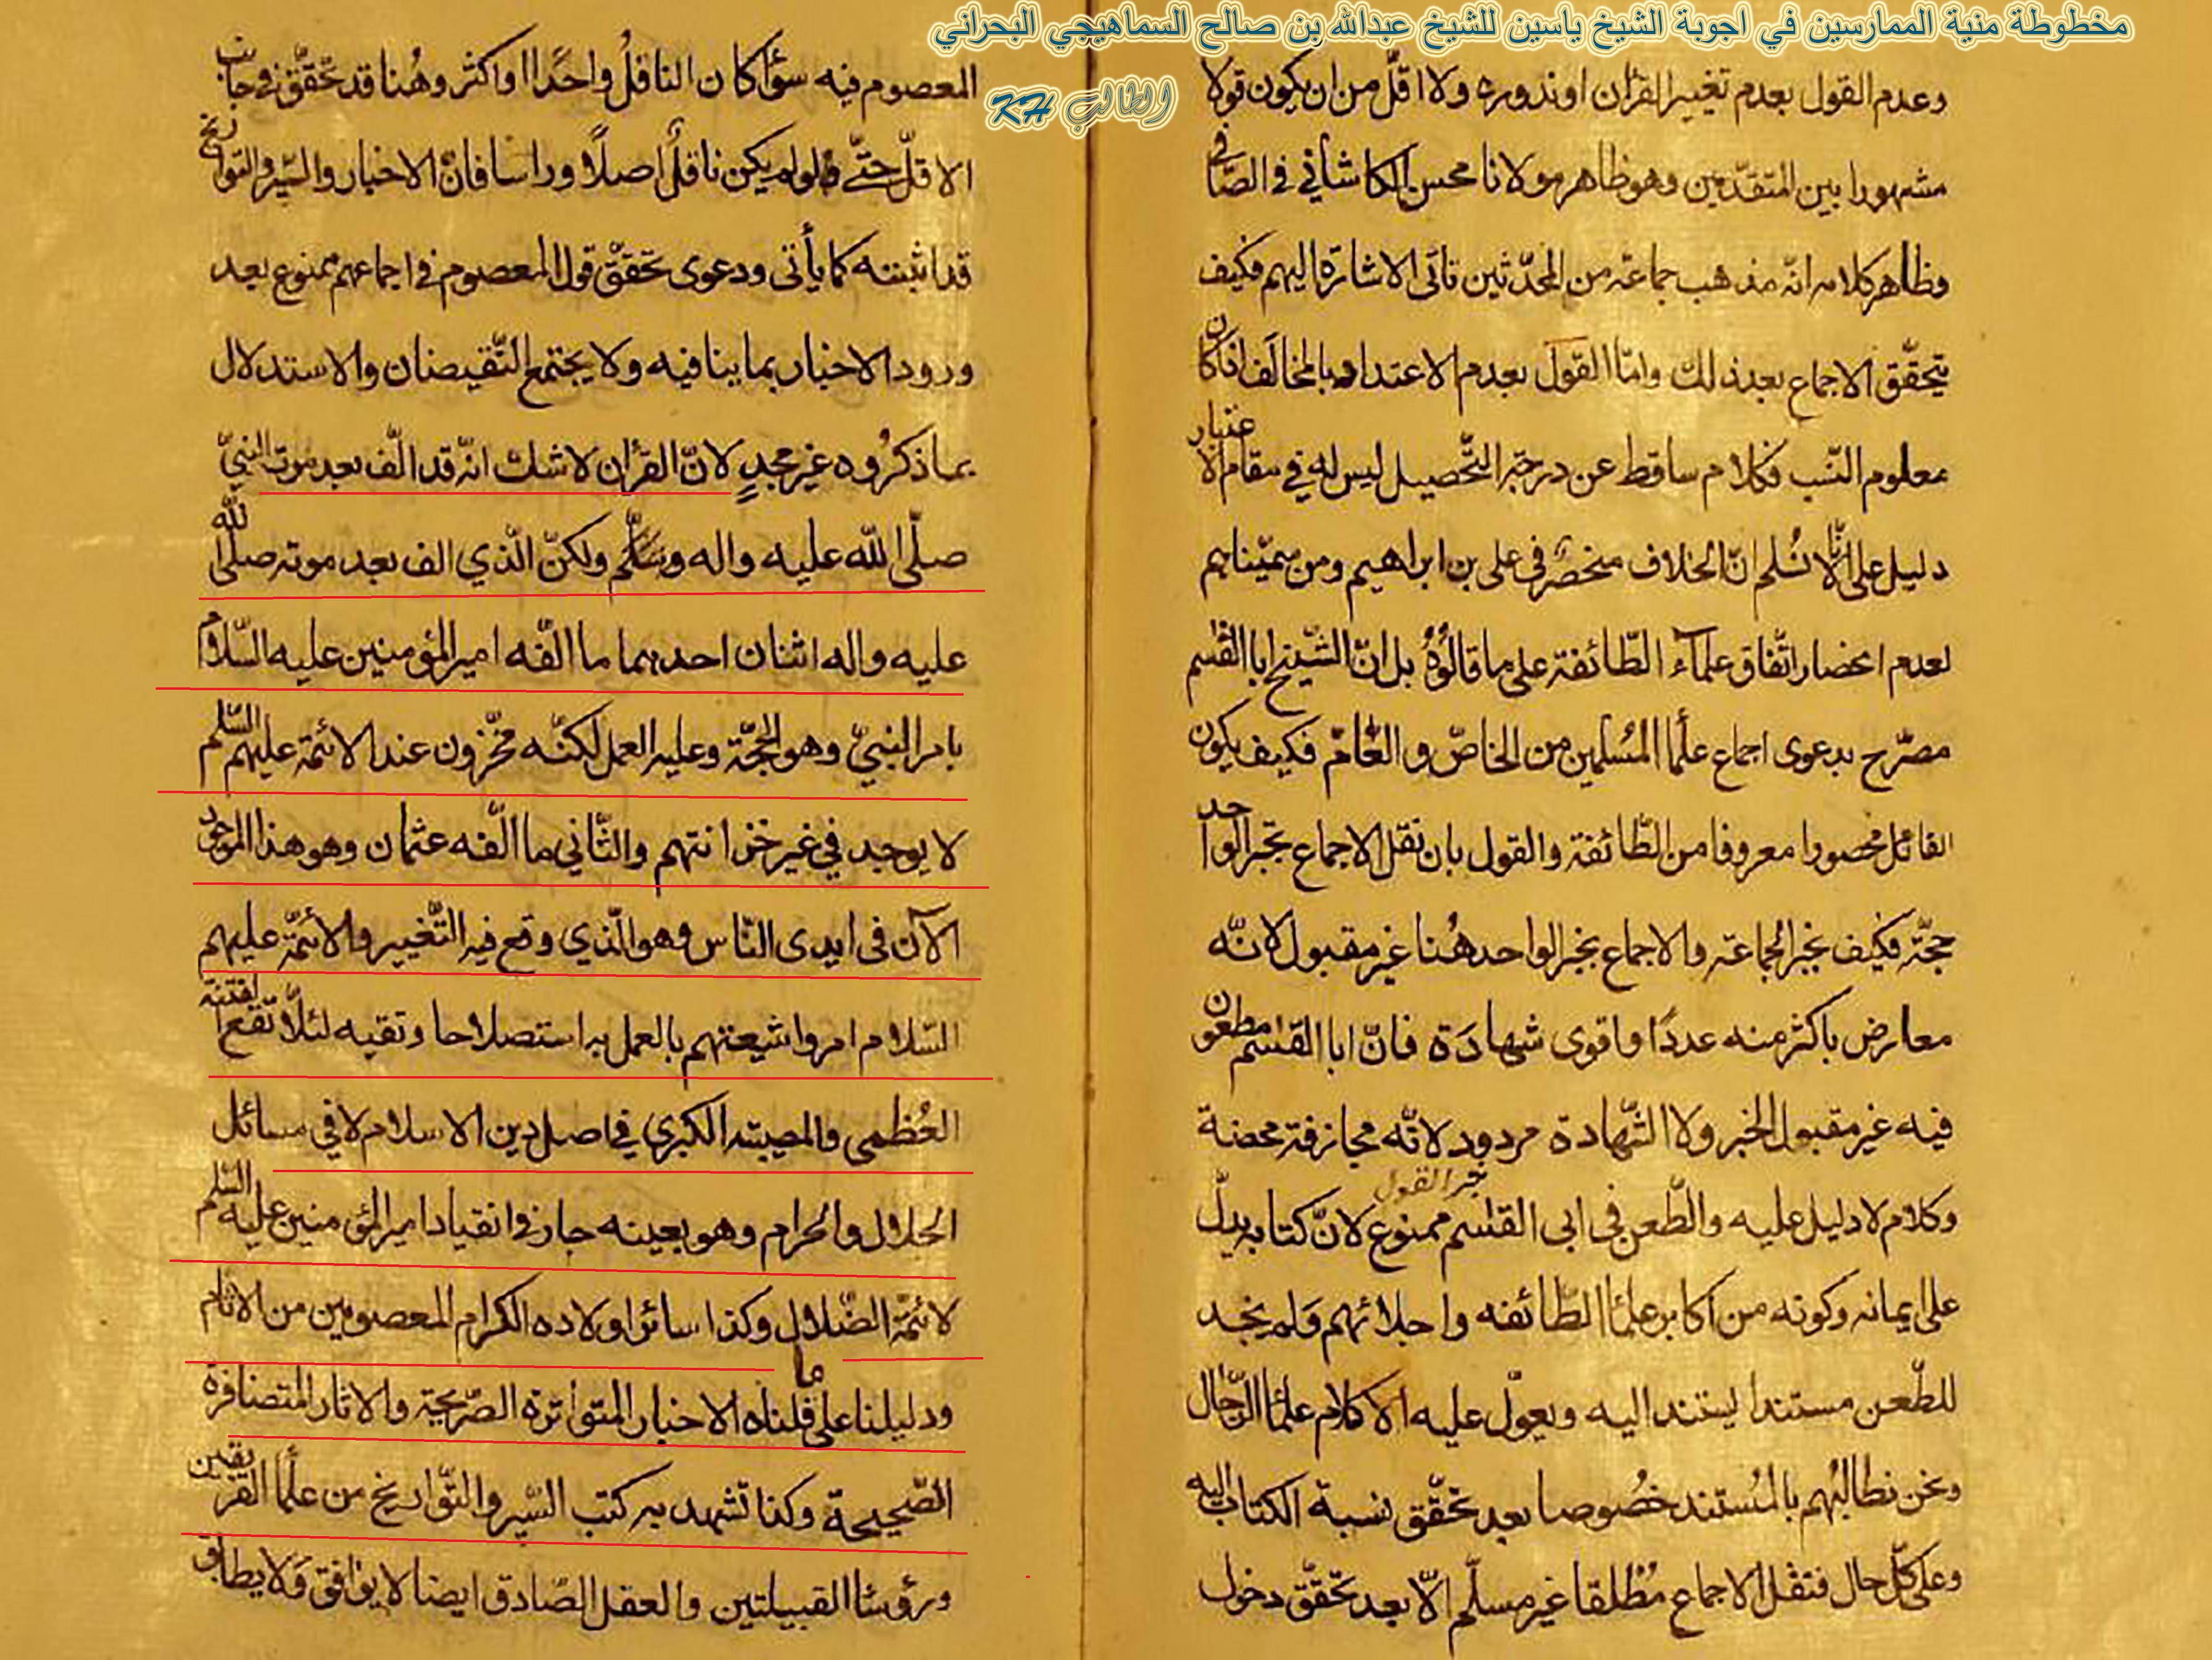 مخطوطة منية الممارسين في اجوبة الشيخ ياسين للشيخ عبدالله بن صالح السماهيجي البحراني
الطالب KH
وعدم القول بعدم تغيير القرأن او ندوره ولا اقلّ من ان يكون قولا
مشهورا بين المتقدّمين وهو ظاهر مولانا محسن الكاشاني في الصّافي
وظاهر كلامه انّه مذهب جماعة من المحدّثين تاتى الاشارة اليهم فكيف
يتحقّق الاجماع بعد ذلك وامّا القول بعدم الاعتداد بالمخالف اذا كان
معلوم النّسب فكلام ساقط عن درجة التّحصيل ليس له في مقام الاعتبار
دليل على انّا لا نُسلم انّ الخلاف منحصر فى على بن ابراهيم ومن سمّيناهم
لعدم انحصار اتّفاق علمآء الطّائفة على ما قالوُهُ بل انّ الشّيخ ابا القٰسم
مصرّح بدعوى اجماع علمأ المُسلمين من الخاصّ والعامّ فكيف يكون
القائل محصورا معروفا من الطّائفة والقول بان نقل الاجماع بخبر الواحد
حجّة فكيف بخبر الجماعة والاجماع بخبر الواحد هُنا غير مقبول لانّه
معارض باكثر منه عددًا واقوى شهادَة فانّ ابا القٰسم مطعون
فيه غير مقبول الخبر ولا الشّهادة مردود لانّه مجازفة محضة
وكلام لا دليل عليه والطّعن فى ابى القٰسم ممنوع لانّ كتابه يدلّ
على ايمانه وكونه من اكابر علمأ الطّائفه واجلائهم ولم نجد
للطّعن مستندا يستند اليه ويعوّل عليه الا كلام علمأ الرّجال
ونحن نطالبُهم بالمُستند خصُوصا بعد تحقّق نسبة الكتاب اليه
وعلى كلّ حال فنقل الاجماع مُطلقا غير مسلّم الاّ بعد تحقّق دخول
المعصوم فيه سوٰأ كان الناقلُ واحدًا او اكثر وهُنا قد تحقّق فى جانب
الاقلّ حتّى ولو لم يكن ناقلٌ اصلًا وراسا فانّ الاخبار والسّير والتواريخ
قد اثبتته كما يأتى ودعوى تحقّق قول المعصوم فى اجماعهم ممنوع بعد
ورود الاخبار بما ينافيه ولا يجتمع النّقيضان والاستدلال
بما ذكرُوه غير مجدٍ لانّ القرأن لا شك انّه قد الّف بعد موت النبىّ
صلّى الله عليه واله وسلّم ولكنّ الّذي الف بعد موته صلّى الله
عليه واله اثنان احدهما ما الفّه امير المؤمنين عليه السّلام
بامر النبيّ وهو الحجّة وعليه العمل لكنّه مخزون عند الائمة عليهم السّلم
لا يوجد في غير خزانتهم والثّاني ما الّفه عثمان وهو هذا الموجود
الآن فى ايدى النّاس وهو الّذي وقع فيه التّغيير والائمّة عليهم
السّلام امروا شيعتهم بالعمل به استصلاحا وتقيه لئلّا تقع الفتنة
العُظمى والمصيبة الكبرى في اصل دين الاسلام لا في مسائل
الحلال والحرام وهو بعينه جار فى انقياد امير المؤمنين عليه السّلم
لائمّة الضّلال وكذا سائر اولاده الكرام المعصومين من الاثام
ودليلنا على ما قلناه الاخبار المتواترة الصّريحة والاثار المتضافرة
الصّحيحة وكذا تشهد به كتب السّير والتّواريخ من علمأ الفريقين
ورؤسأ القبيلتين والعقل الصّادق ايضا لا يوافق وَلا يطابق